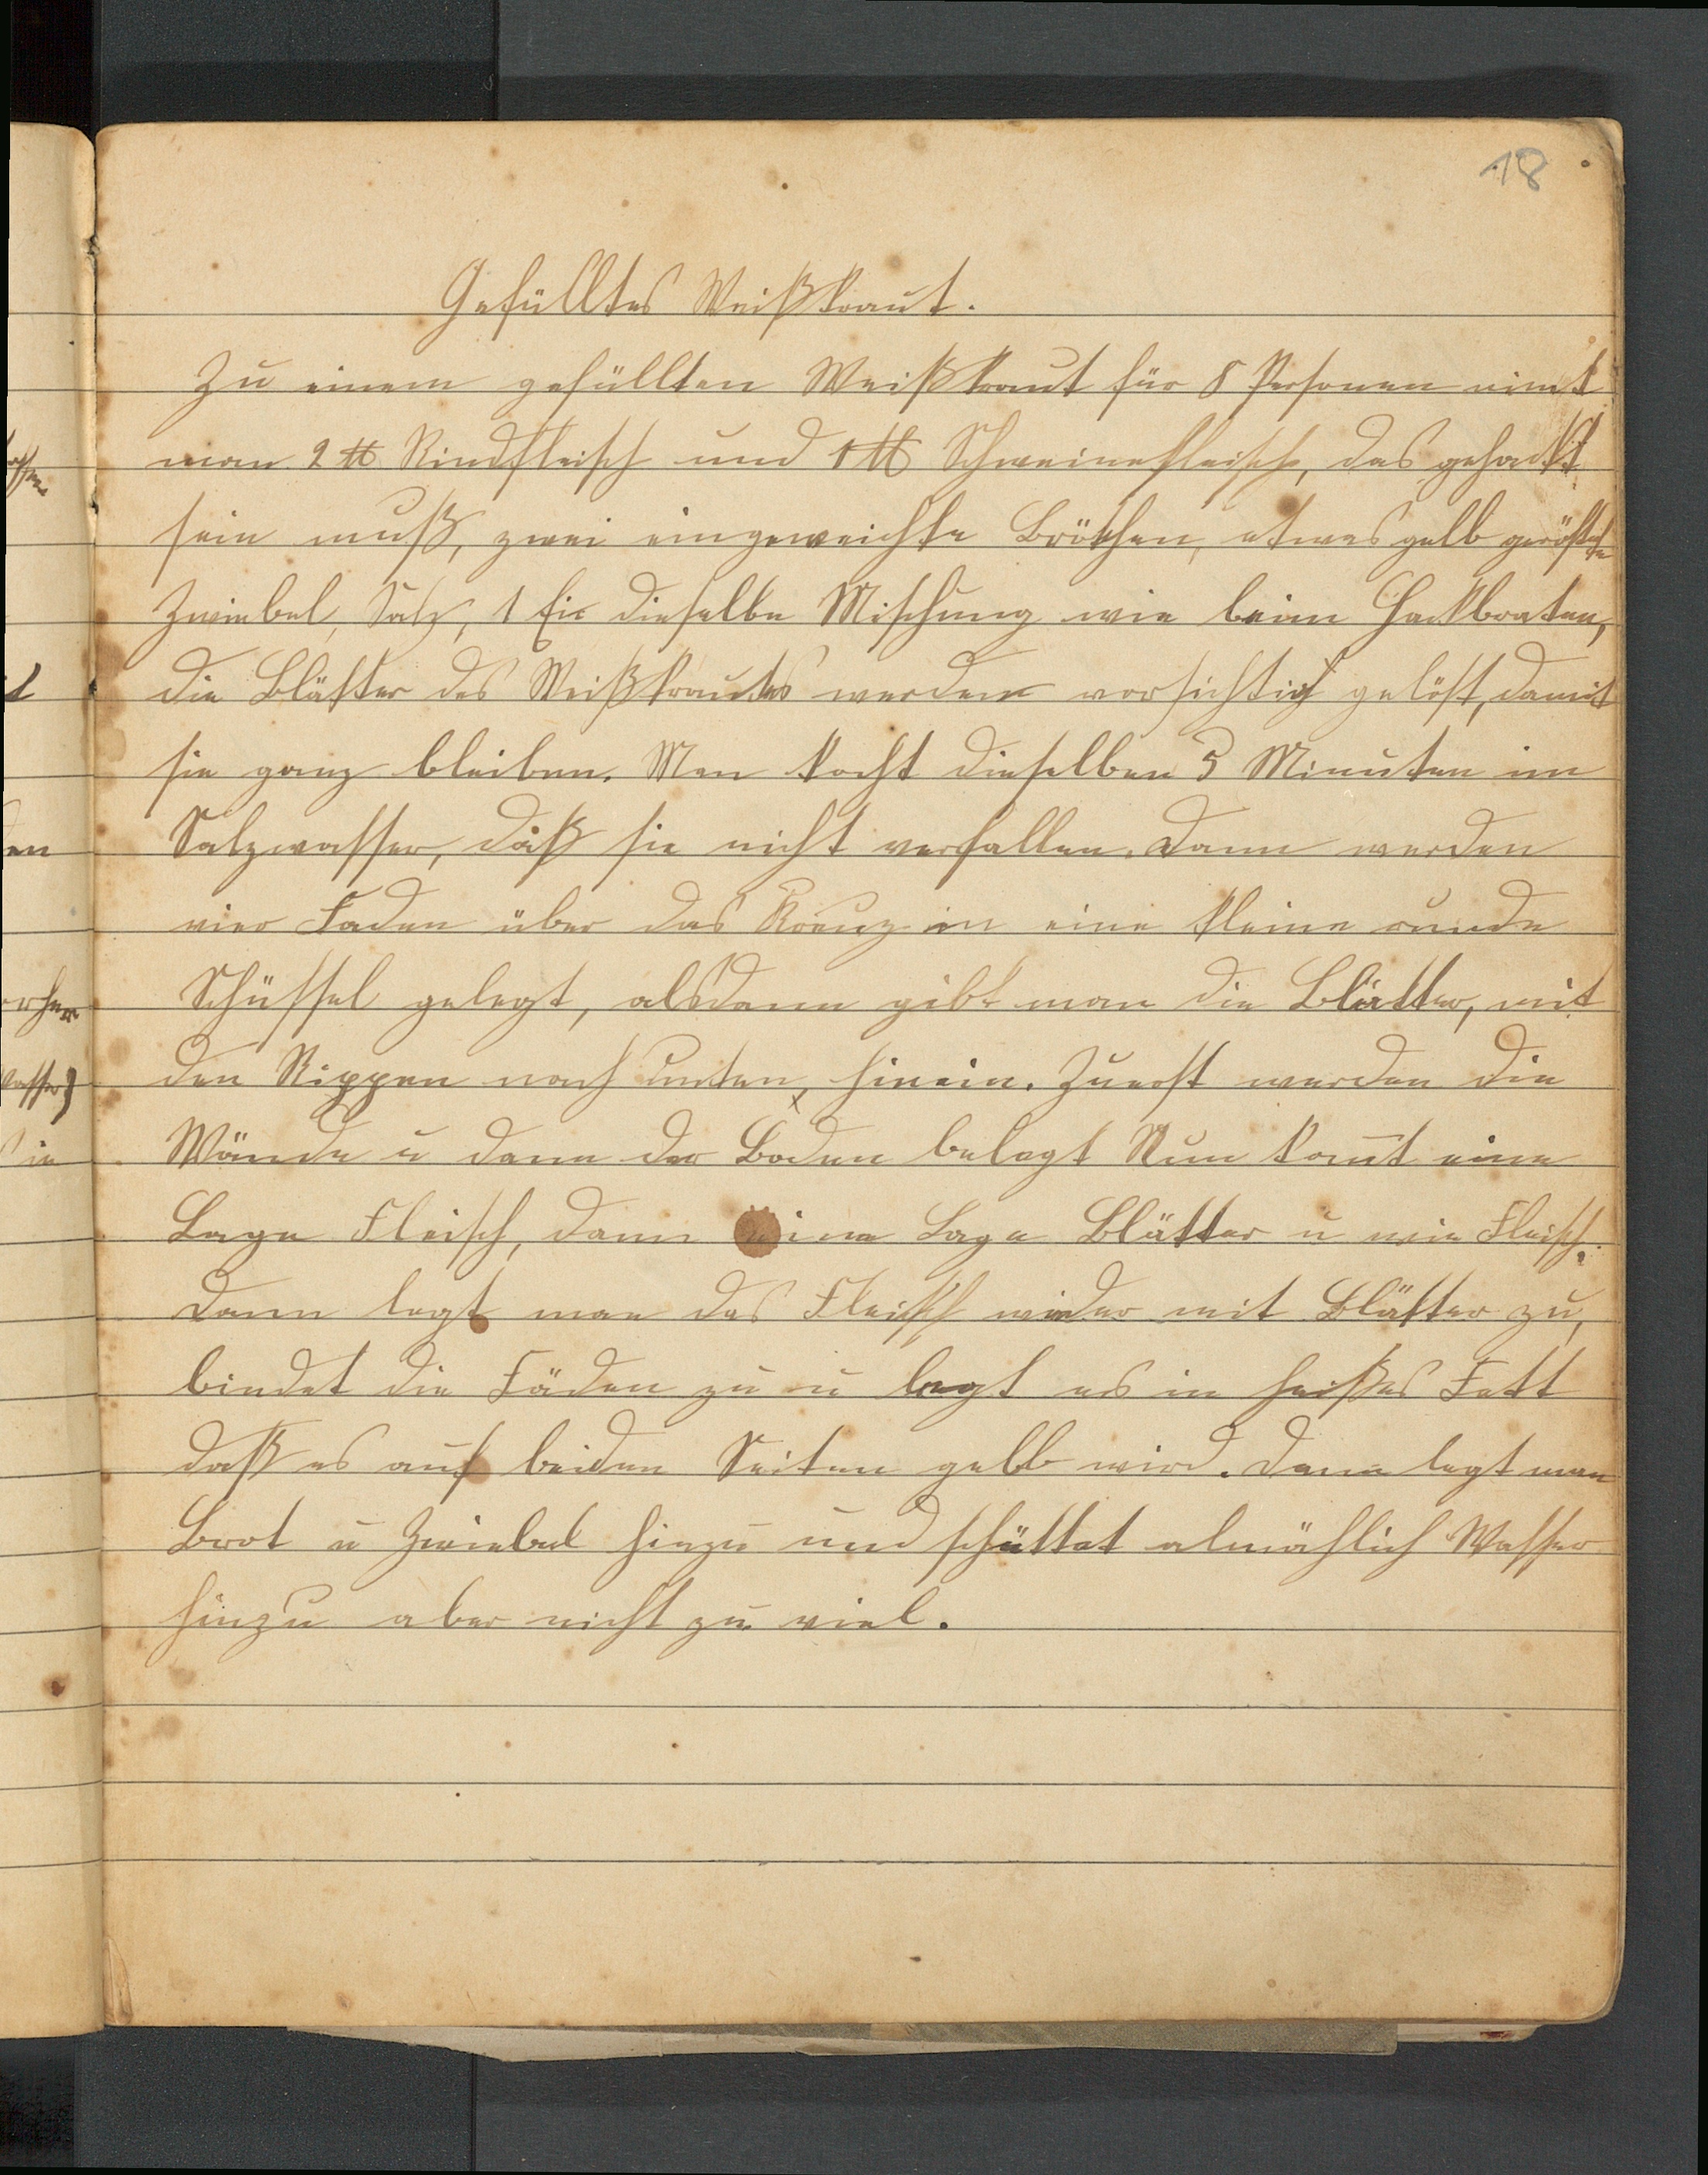 18
Gefülltes Weißkraut.
Zu einem gefüllten Weißkraut für 8 Personen nimt
man 2 ℔ Rindfleisch und 1 ℔ Schweinefleisch, das gehackt
sein muß, zwei eingeweichte Brötchen, etwas gelb geröstete
Zwiebel, Salz, 1 Ei dieselbe Mischung wie beim Hackbraten,
die Blätter des Weißkrautes werden vorsichtig gelöst, damit
sie ganz bleiben. Man kocht dieselben 5 Minuten im
Salzwasser, daß sie nicht verfallen. Dann werden
vier Faden über das Kreuz in eine kleine runde
Schüssel gelegt, alsdann gibt man die Blätter, mit
den Rippen nach unten, hinein. Zuerst werden die
Wände u dann der Boden belegt Nun kom̄t eine
Lage Fleisch, dann eine Lage Blätter u wie Fleisch.
Dann legt man das Fleisch wieder mit Blätter zu,
bindet die Fäden zu u legt es in heißes Fett
daß es auf beiden Seiten gelb wird. Dann legt man
Brot u Zwiebel hinzu und schüttet almählich Wasser
hinzu aber nicht zu viel.